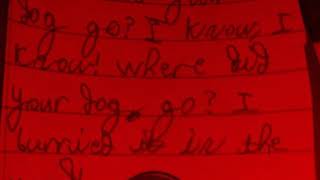 dog go? I know I
know! where did
your dog go? I
burried it in the